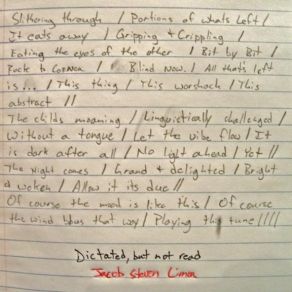 Slithering through / Portions of whats left /
It eats away / Gripping & Crippling /
Eating the eyes of the other / Bit by Bit /
Back to / Blind Now. / All thats left
is... / This thing / This / This
abstract //
The childs moaning / Linguistically challenged /
Without a tongue / Let the vibe flow / It
is dark after all / No light ahead / Yet //
The night comes / Grand & delighted / Bright
& woken / Allow it its due //
Of course the mood is like this / Of course
the wind blows that way / Playing this tune ////
Dictated, but not read
Jacob Steven Limon